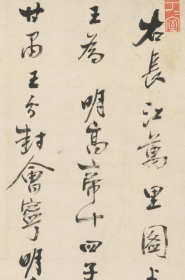 右長江萬里圖
王為 明高帝十四子
甘肅王分封會寧明